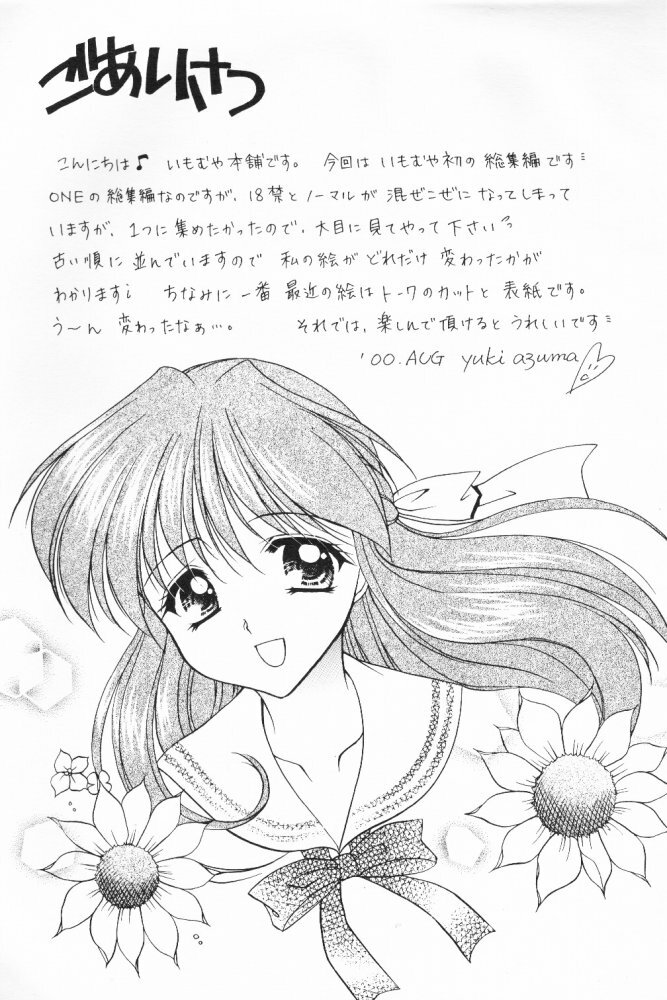 ごあいさつ
こんにちは♪ いもむや本舗です。 今回は いもむや初の 総集編です
ONEの総集編なのですが、18禁とノーマルが 混ぜこぜに なってしまって
いますが、1つに集めたかったので、大目に見てやって下さい
古い順に並んでいますので 私の絵が どれだけ 変わったかが
わかります¡ ちなみに 一番 最近の絵はトークのカットと 表紙です。
う〜ん 変わったなぁ…。 それでは、楽しんで頂けると うれしいです
'00.AUG yuki azuma